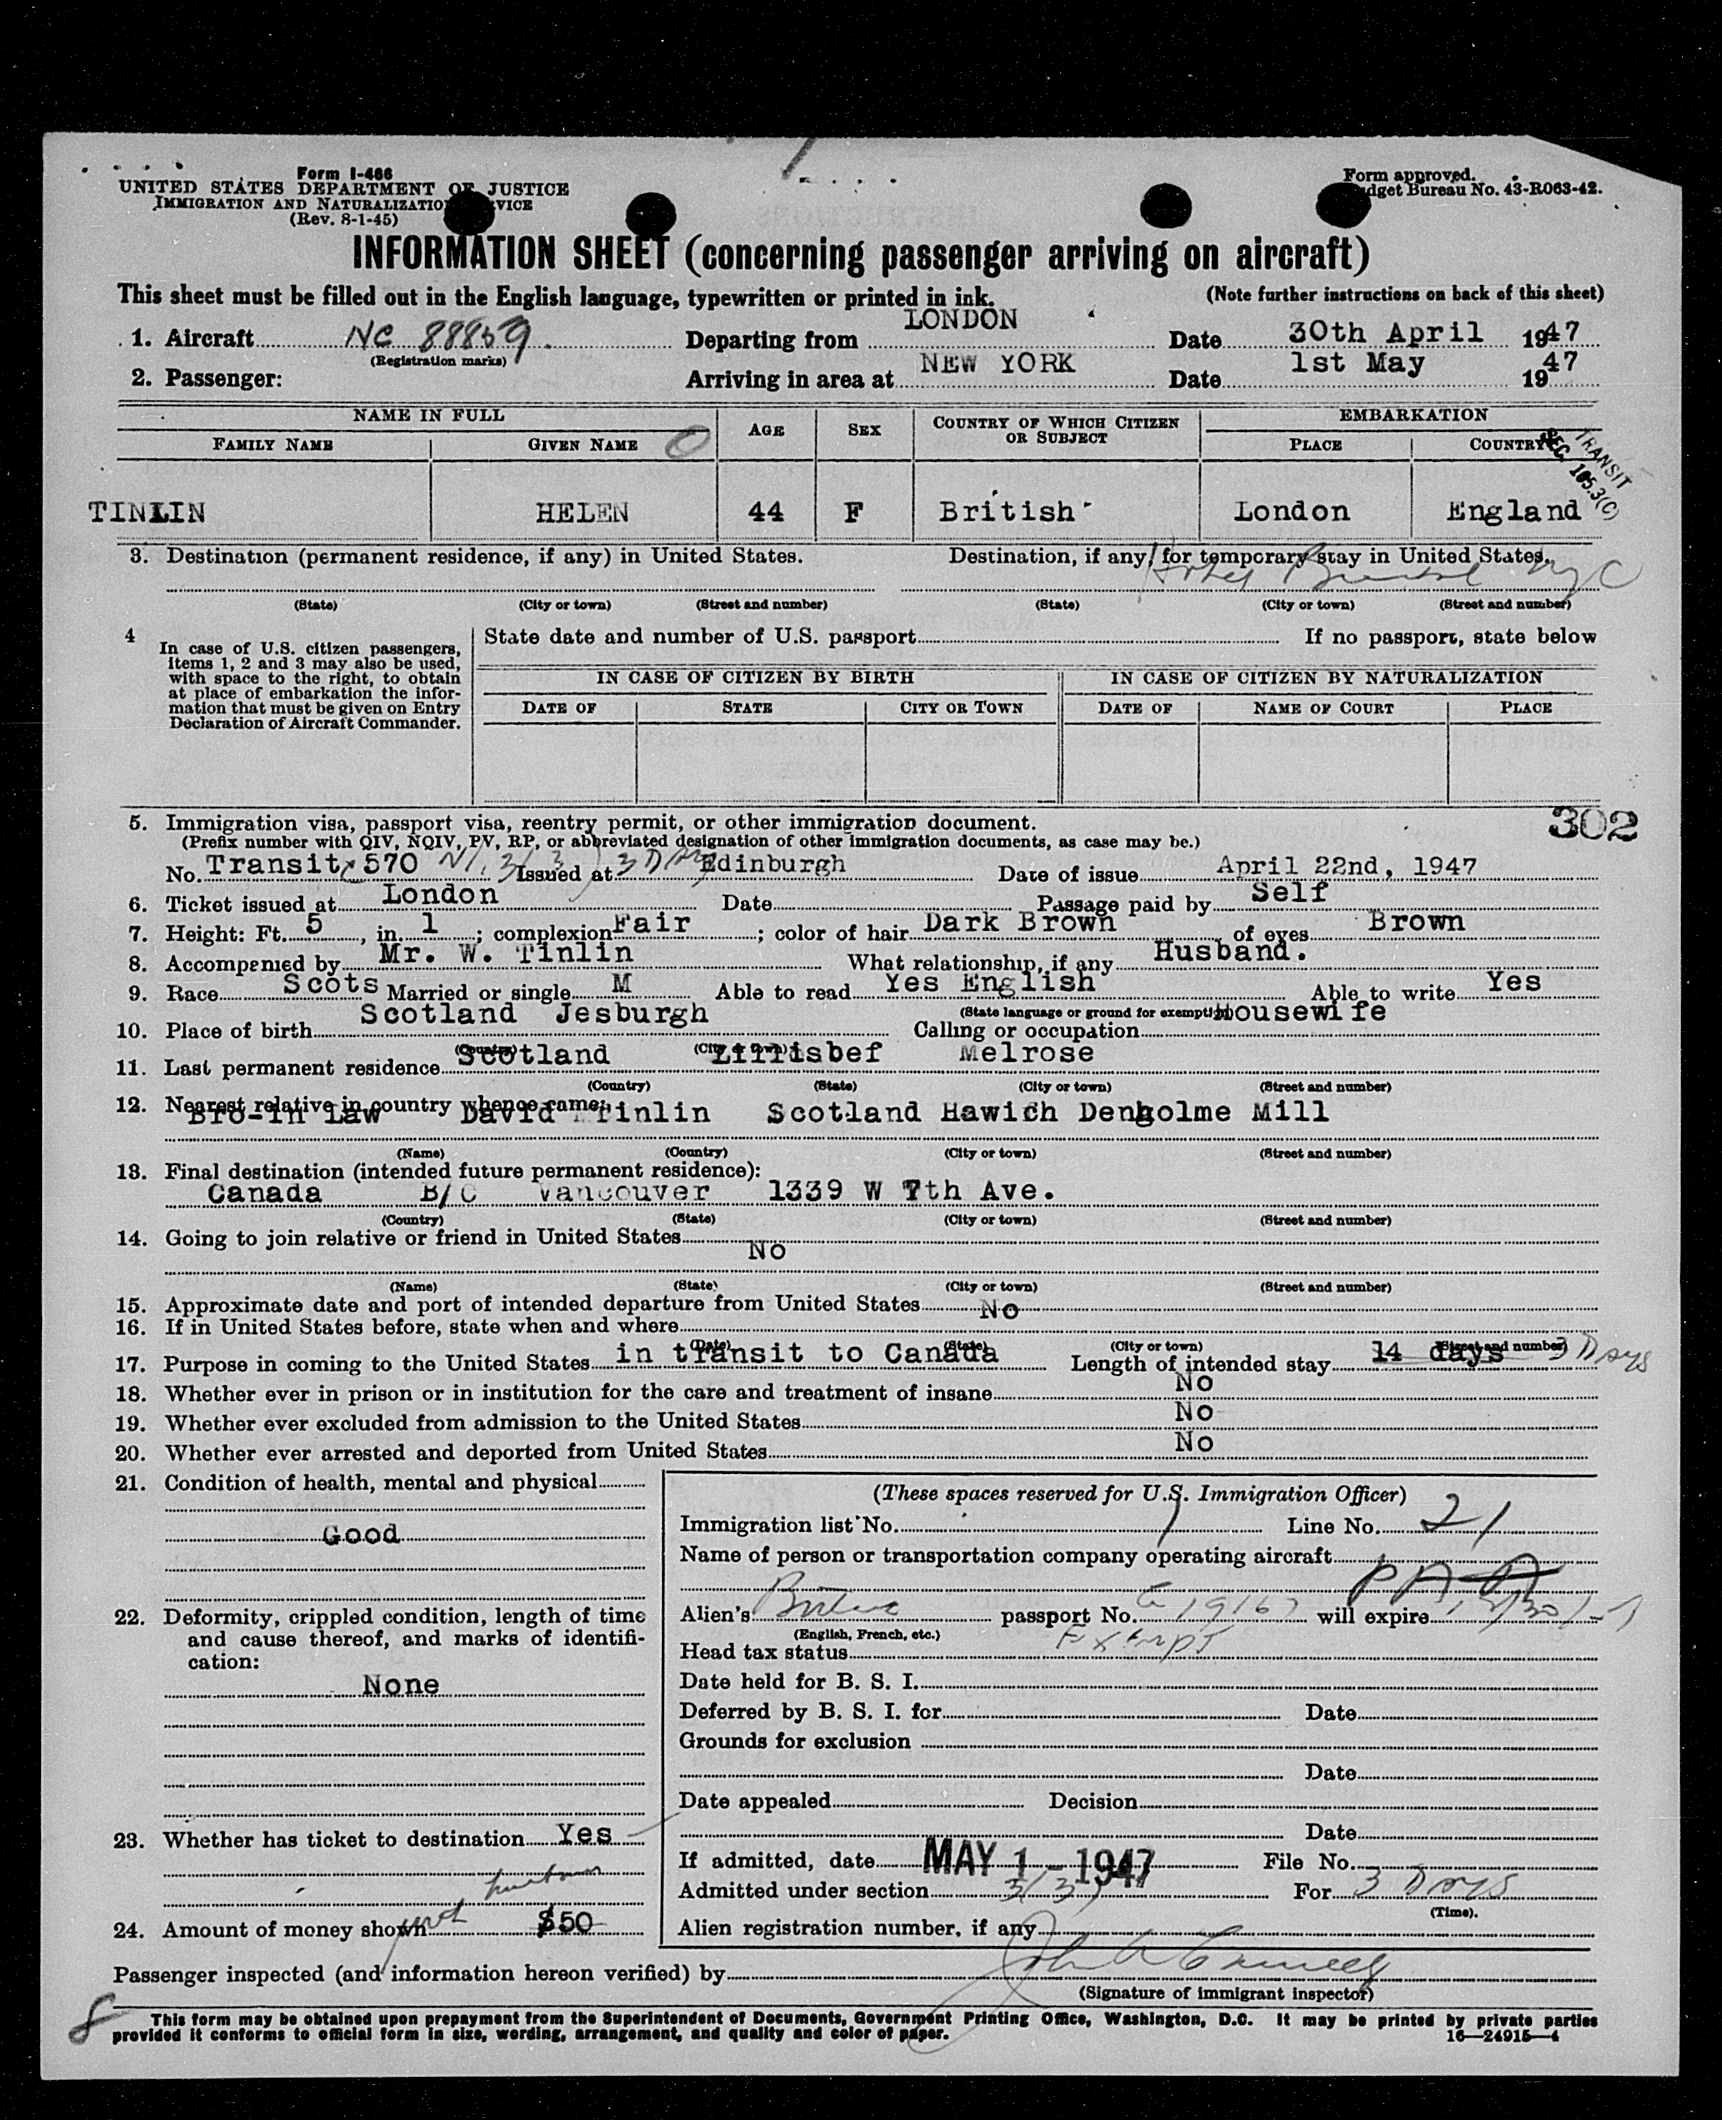 Form I-466
UNITED STATES DEPARTMENT OF JUSTICE
IMMIGRATION AND NATURALIZATION SERVICE
(Rev. 8-1-45)
Form approved.
Budget Bureau No. 43-R063-42.
INFORMATION SHEET (concerning passenger arriving on aircraft)
This sheet must be filled out in the English language, typewritten or printed in ink. (Note further instructions on back of this sheet)
1. Aircraft NC 88859. Departing from LONDON Date 30th April 1947
(Registration marks)
2. Passenger: Arriving in area at NEW YORK Date 1st May 1947
NAME IN FULL AGE SEX COUNTRY OF WHICH CITIZEN OR SUBJECT EMBARKATION
FAMILY NAME GIVEN NAME PLACE COUNTRY
TRANSIT
SEC. 165.3(C)
TINLIN HELEN 44 F British London England
3. Destination (permanent residence, if any) in United States. Destination, if any, for temporary stay in United States.
Hotel NYC
(State) (City or town) (Street and number) (State) (City or town) (Street and number)
4 In case of U.S. citizen passengers, items 1, 2 and 3 may also be used, with space to the right, to obtain at place of embarkation the information that must be given on Entry Declaration of Aircraft Commander.
State date and number of U.S. passport If no passport, state below
IN CASE OF CITIZEN BY BIRTH IN CASE OF CITIZEN BY NATURALIZATION
DATE OF STATE CITY OR TOWN DATE OF NAME OF COURT PLACE
302
5. Immigration visa, passport visa, reentry permit, or other immigration document.
(Prefix number with QIV, NQIV, PV, RP, or abbreviated designation of other immigration documents, as case may be.)
No. Transit 570 3(3) 3 Days Issued at Edinburgh Date of issue April 22nd, 1947
6. Ticket issued at London Date Passage paid by Self
7. Height: Ft. 5, in. 1; complexion Fair; color of hair Dark Brown of eyes Brown
8. Accompanied by Mr. W. Tinlin What relationship, if any Husband.
9. Race Scots Married or single M Able to read Yes English Able to write Yes
(State language or ground for exemption)
10. Place of birth Scotland Jesburgh Calling or occupation Housewife
(Country) (City or town)
11. Last permanent residence Scotland Lillisbef Melrose
(Country) (State) (City or town) (Street and number)
12. Nearest relative in country whence came:
Bro-in Law David Tinlin Scotland Hawich Denholme Mill
(Name) (Country) (City or town) (Street and number)
13. Final destination (intended future permanent residence):
Canada B/C Vancouver 1339 W 7th Ave.
(Country) (State) (City or town) (Street and number)
14. Going to join relative or friend in United States
No
(Name) (State) (City or town) (Street and number)
15. Approximate date and port of intended departure from United States No
16. If in United States before, state when and where
(Date) (State) (City or town) (Street and number)
17. Purpose in coming to the United States in transit to Canada Length of intended stay 14 days 3 Days
18. Whether ever in prison or in institution for the care and treatment of insane No
19. Whether ever excluded from admission to the United States No
20. Whether ever arrested and deported from United States No
21. Condition of health, mental and physical
Good
22. Deformity, crippled condition, length of time and cause thereof, and marks of identification:
None
23. Whether has ticket to destination Yes
24. Amount of money shown $50
(These spaces reserved for U.S. Immigration Officer)
Immigration list No. 1 Line No. 21
Name of person or transportation company operating aircraft
PAA
Alien's passport No. will expire
(English, French, etc.)
Head tax status Exempt
Date held for B. S. I.
Deferred by B. S. I. for Date
Grounds for exclusion
Date
Date appealed Decision
Date
If admitted, date MAY 1 - 1947 File No.
Admitted under section 3(3) For 3 Days
(Time).
Alien registration number, if any
Passenger inspected (and information hereon verified) by
(Signature of immigrant inspector)
8
This form may be obtained upon prepayment from the Superintendent of Documents, Government Printing Office, Washington, D.C. It may be printed by private parties
provided it conforms to official form in size, wording, arrangement, and quality and color of paper. 16—24915—4